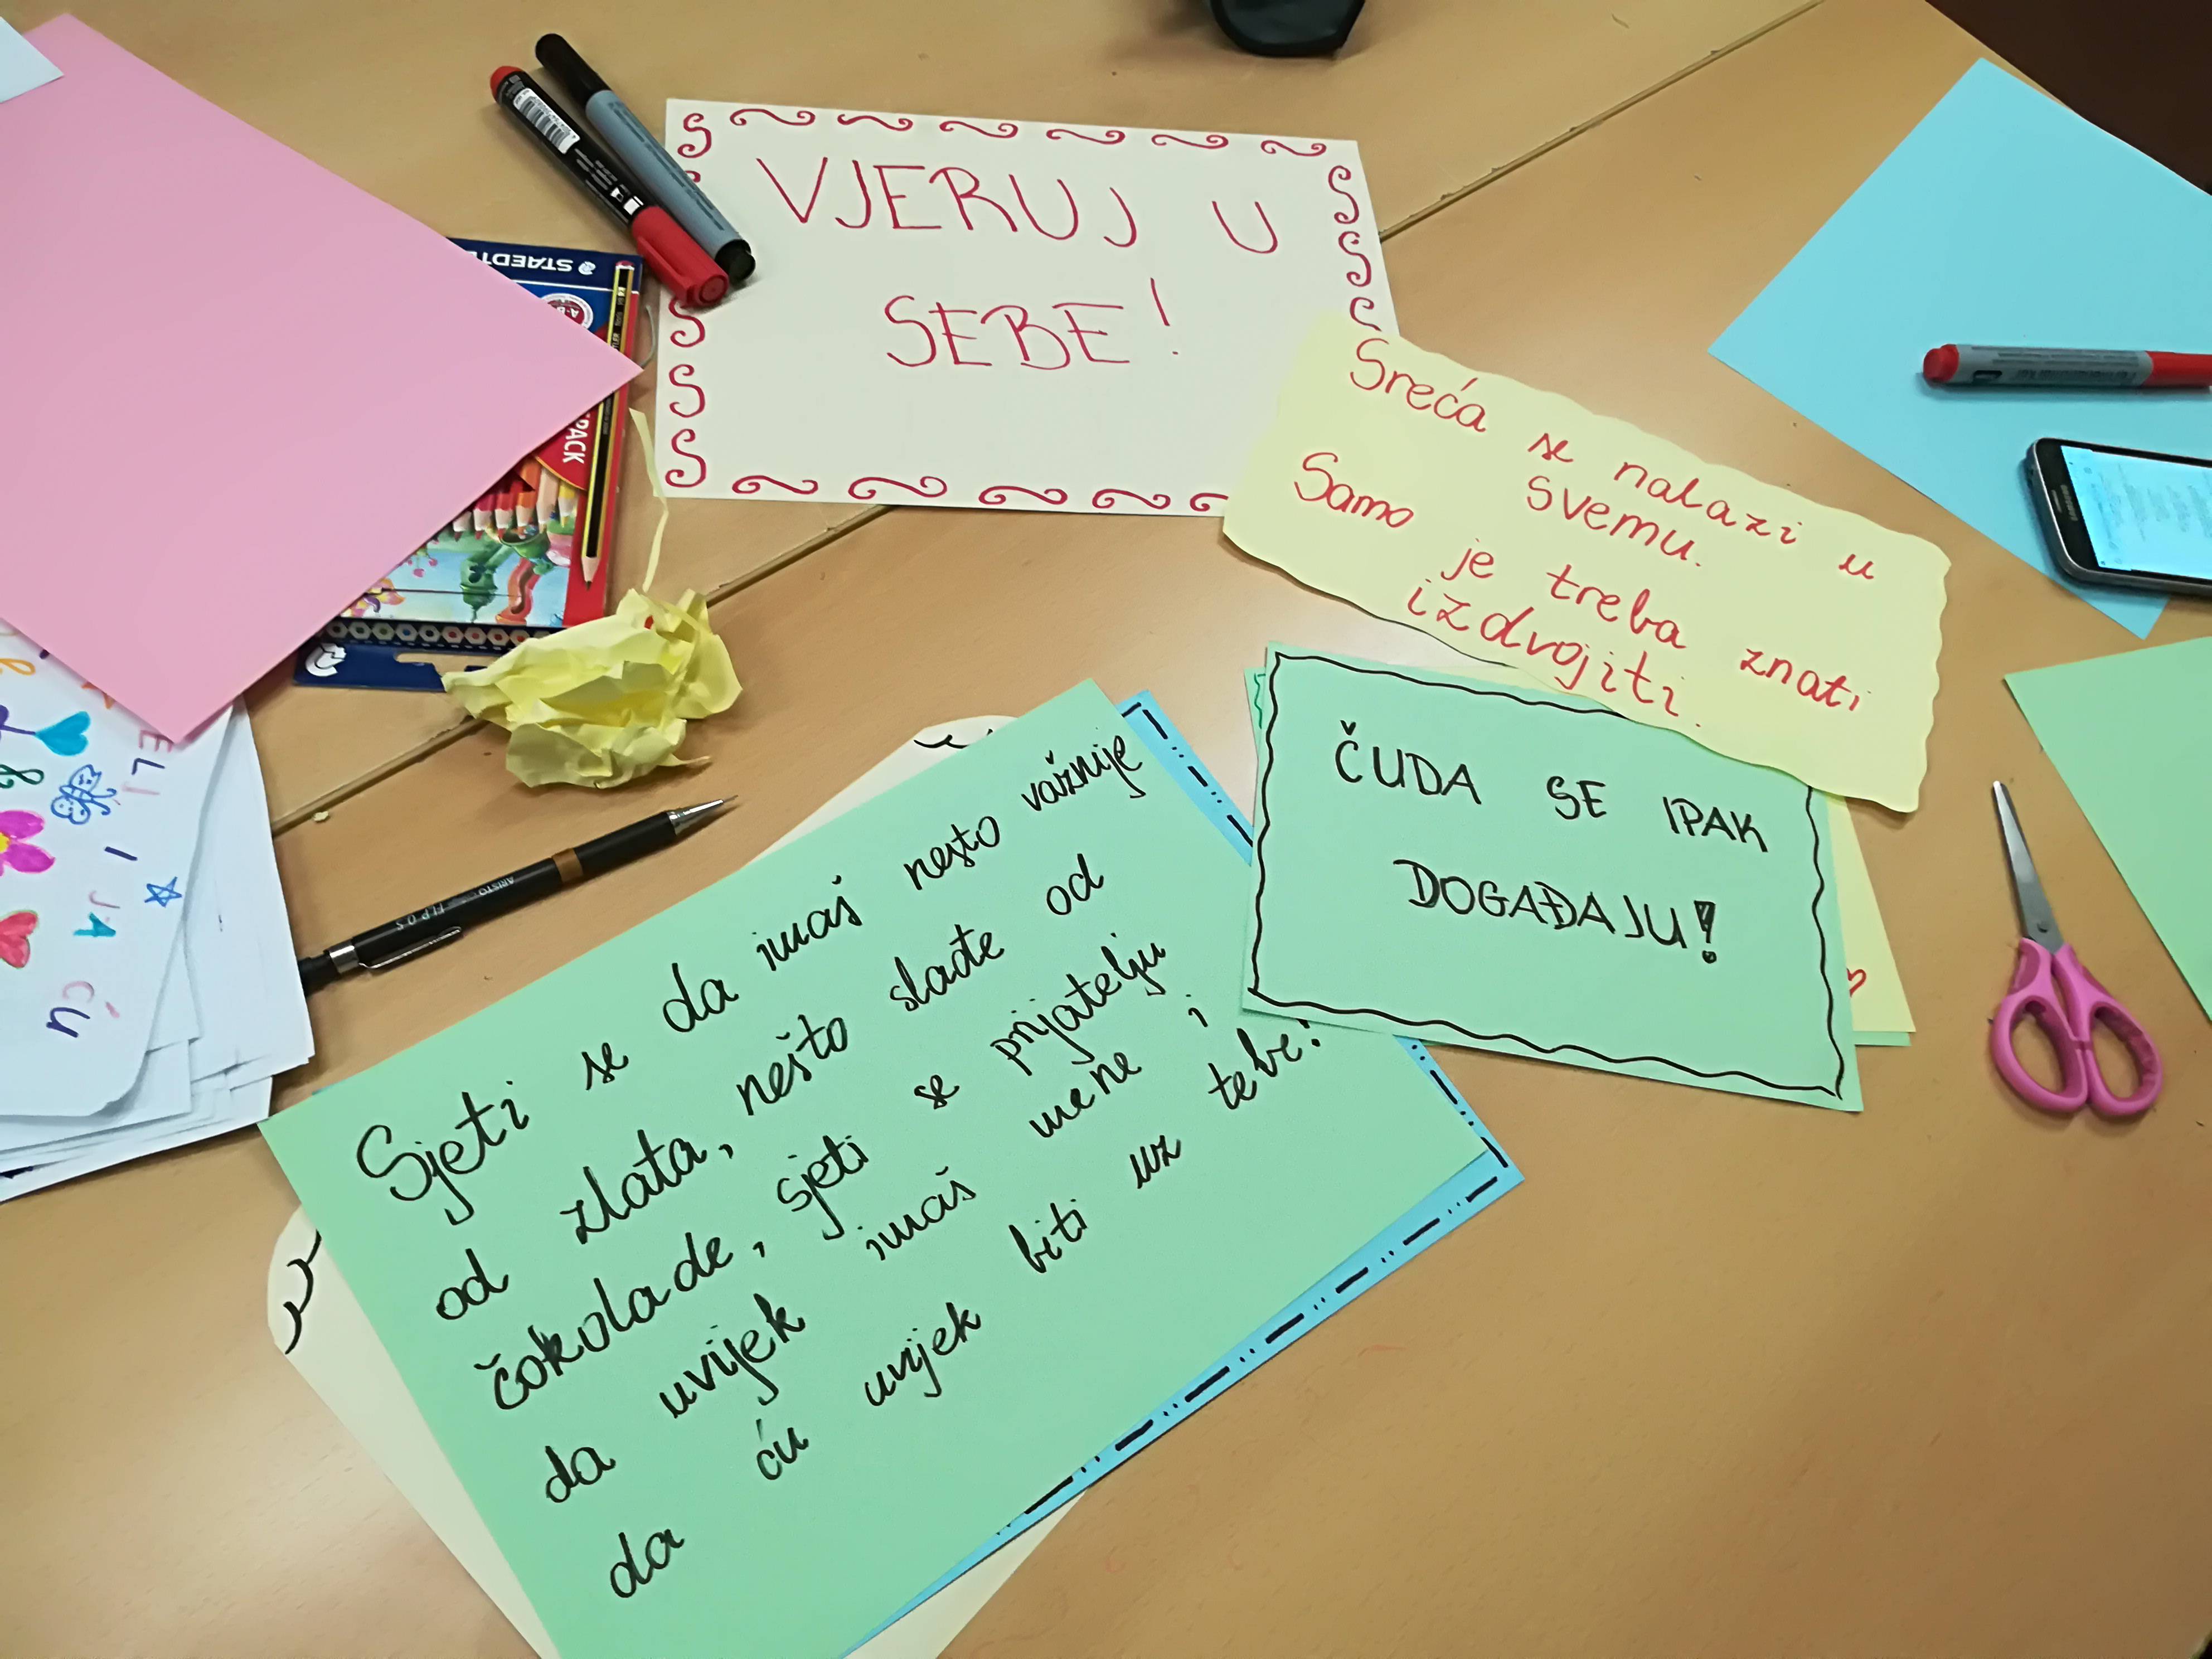 VJERUJ U
SEBE!
Sreća se nalazi u
svemu.
Samo je treba znati
izdvojiti.
ČUDA SE IPAK
DOGAĐAJU!
Sjeti se da imaš nešto važnije
od zlata, nešto slađe od
čokolade, sjeti se prijatelju
da uvijek imaš mene i
da ću uvijek biti uz tebe!
I JA
ĆU
STAEDTL
PACK
ARISTO